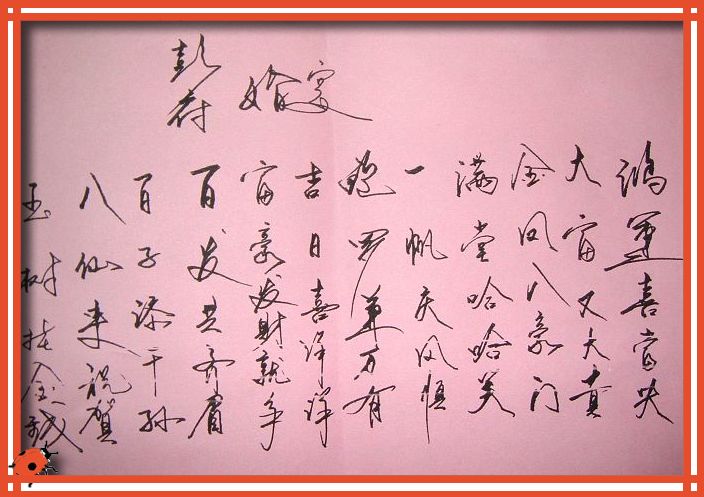 彭府
婚宴
鸿運喜當头
大富又大贵
金凤入豪门
满堂哈哈笑
一帆庆风顺
鲍罗万有
吉日喜洋洋
富豪发财就手
百发共齐眉
百子添千孙
八仙来祝贺
玉树挂金钱